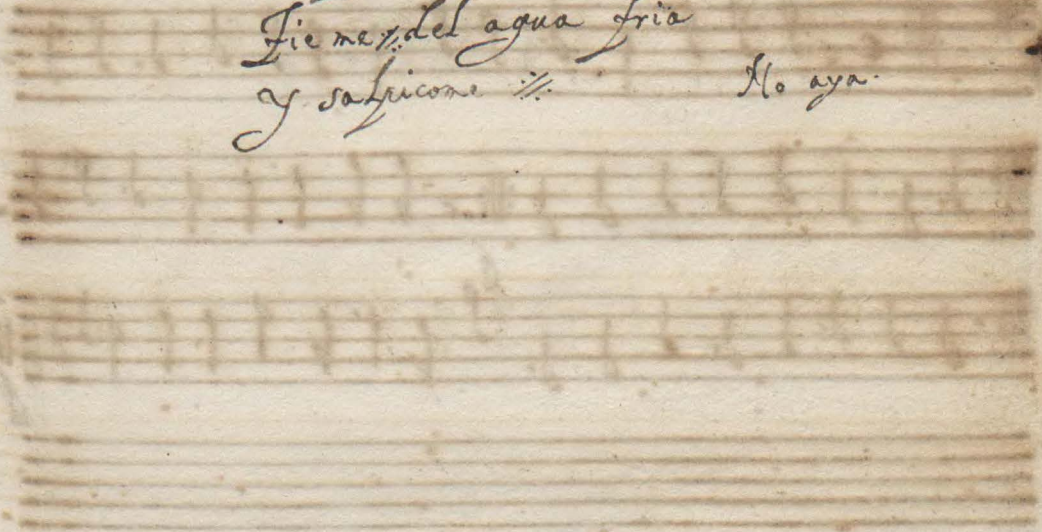 Fie me del agua fria
y salpicome No aya.